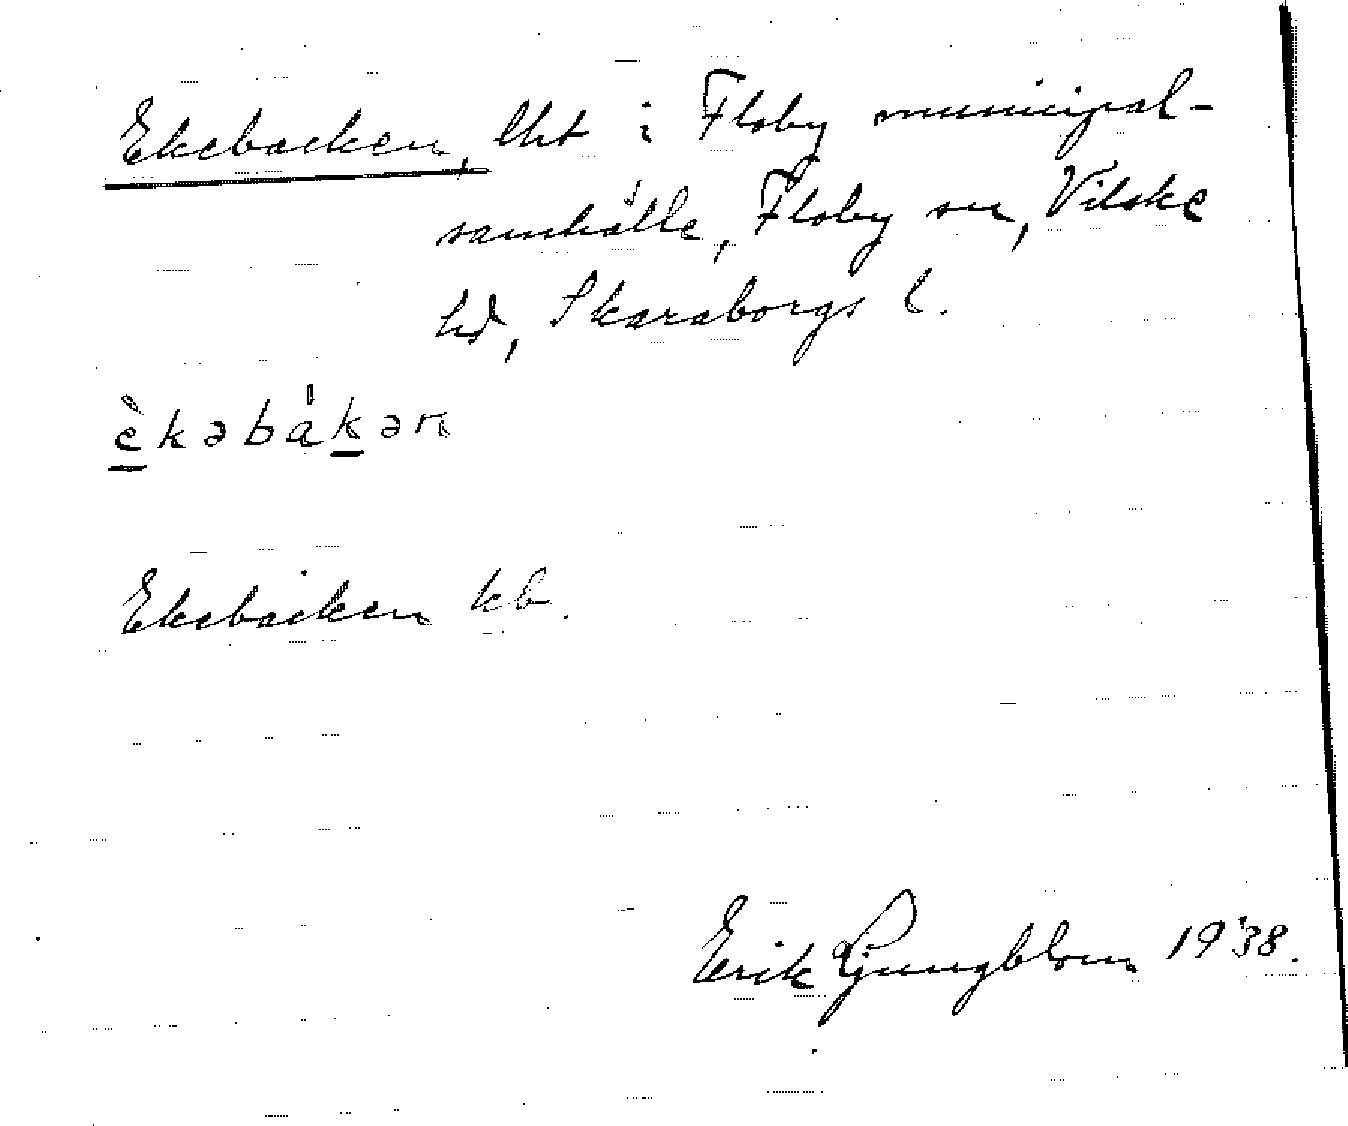 Ekebacken, lht i Floby municipal-
samhälle, Floby sn, Vilske
hd, Skaraborgs l.
è̠kəbákə̠n
Ekebacken kb.
Erik Ljungblom 1938.